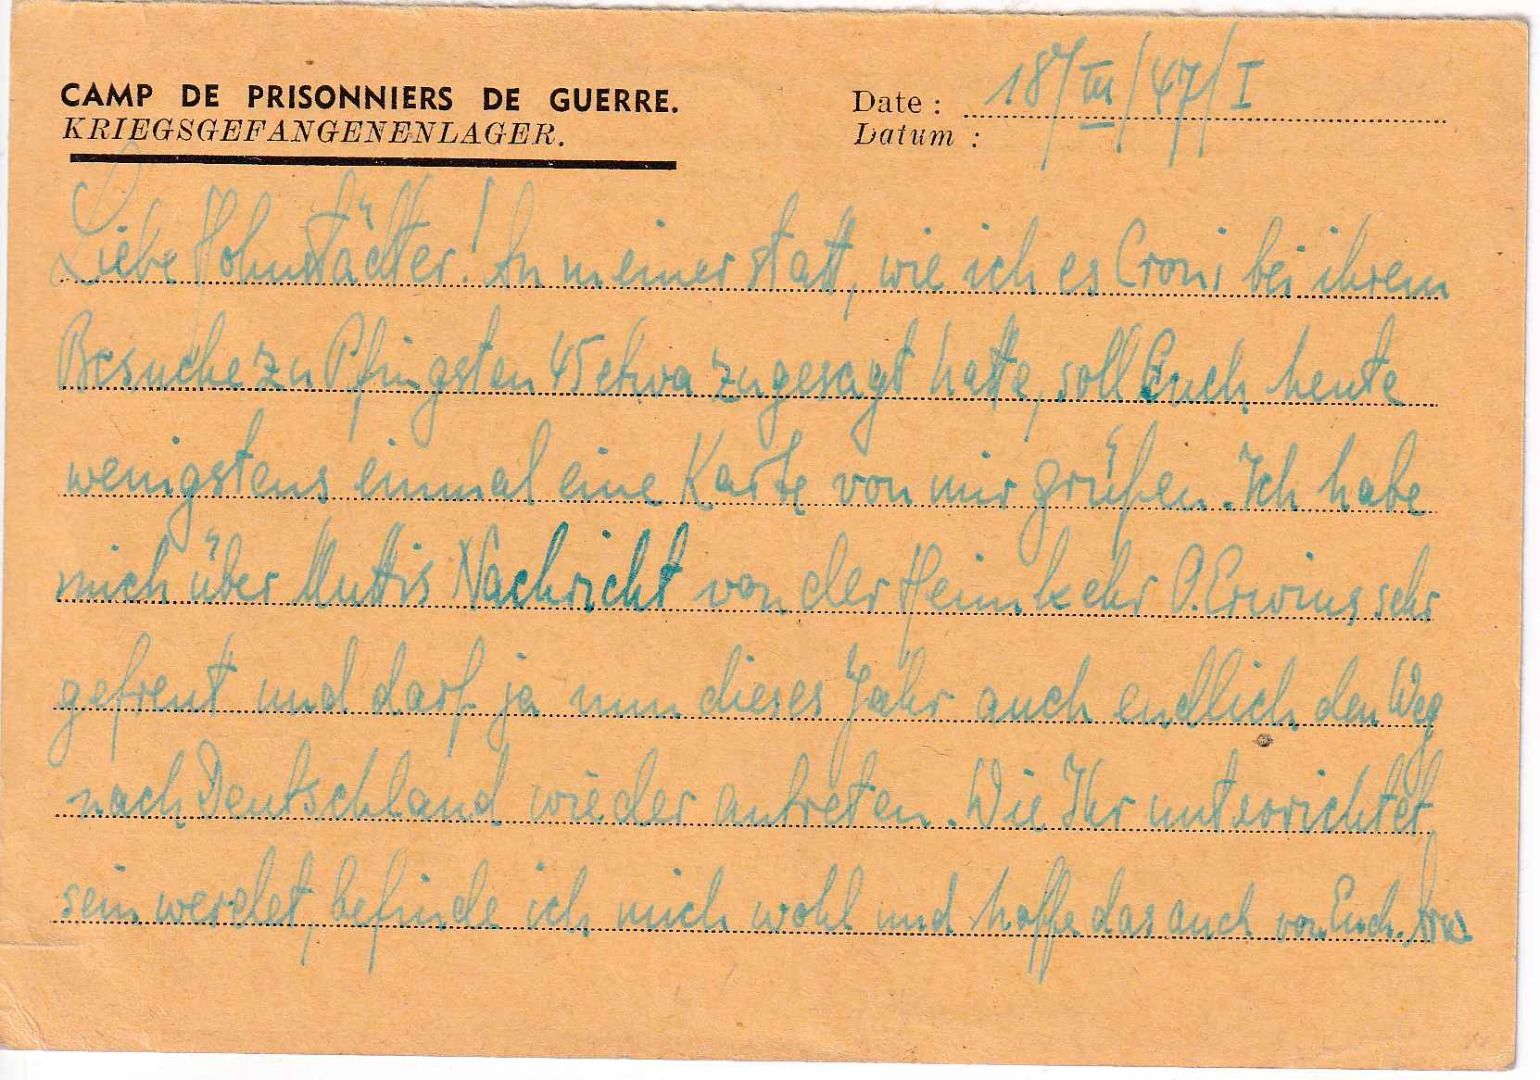 CAMP DE PRISONNIERS DE GUERRE.
KRIEGSGEFANGENENLAGER.
Date : 18/III/47/I
Datum :
Liebe Hohnstädter! An meiner statt, wie ich es Croni bei ihrem
Besuche zu Pfingsten 45 etwa zugesagt hatte, soll Euch heute
wenigstens einmal eine Karte von mir grüßen. Ich habe
mich über Muttis Nachricht von der Heimkehr P. Erwins sehr
gefreut und darf ja nun dieses Jahr auch endlich den Weg
nach Deutschland wieder antreten. Wie Ihr unterrichtet
sein werdet, befinde ich mich wohl und hoffe das auch von Euch.